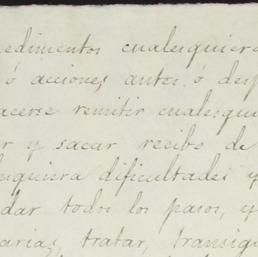 edimentos cualesquiera
ó acciones antes ó desp
acerse remitir cualesqui
r y sacar recibo de
nquiera dificultades y
dar todos los pasos, y
arias, tratar, transig